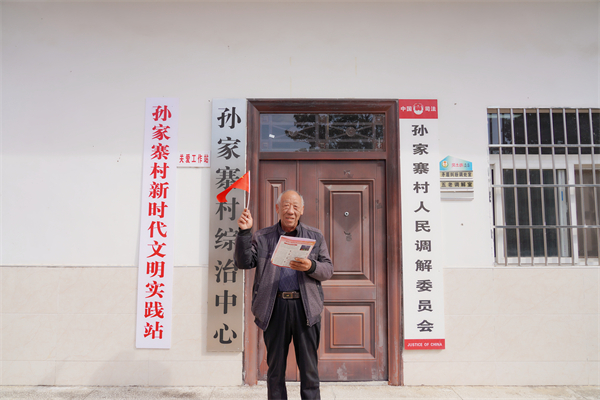 孙家寨村新时代文明实践站
关爱工作站
孙家寨村综治中心
中国 司法
孙家寨村人民调解委员会
JUSTICE OF CHINA
五老调解室